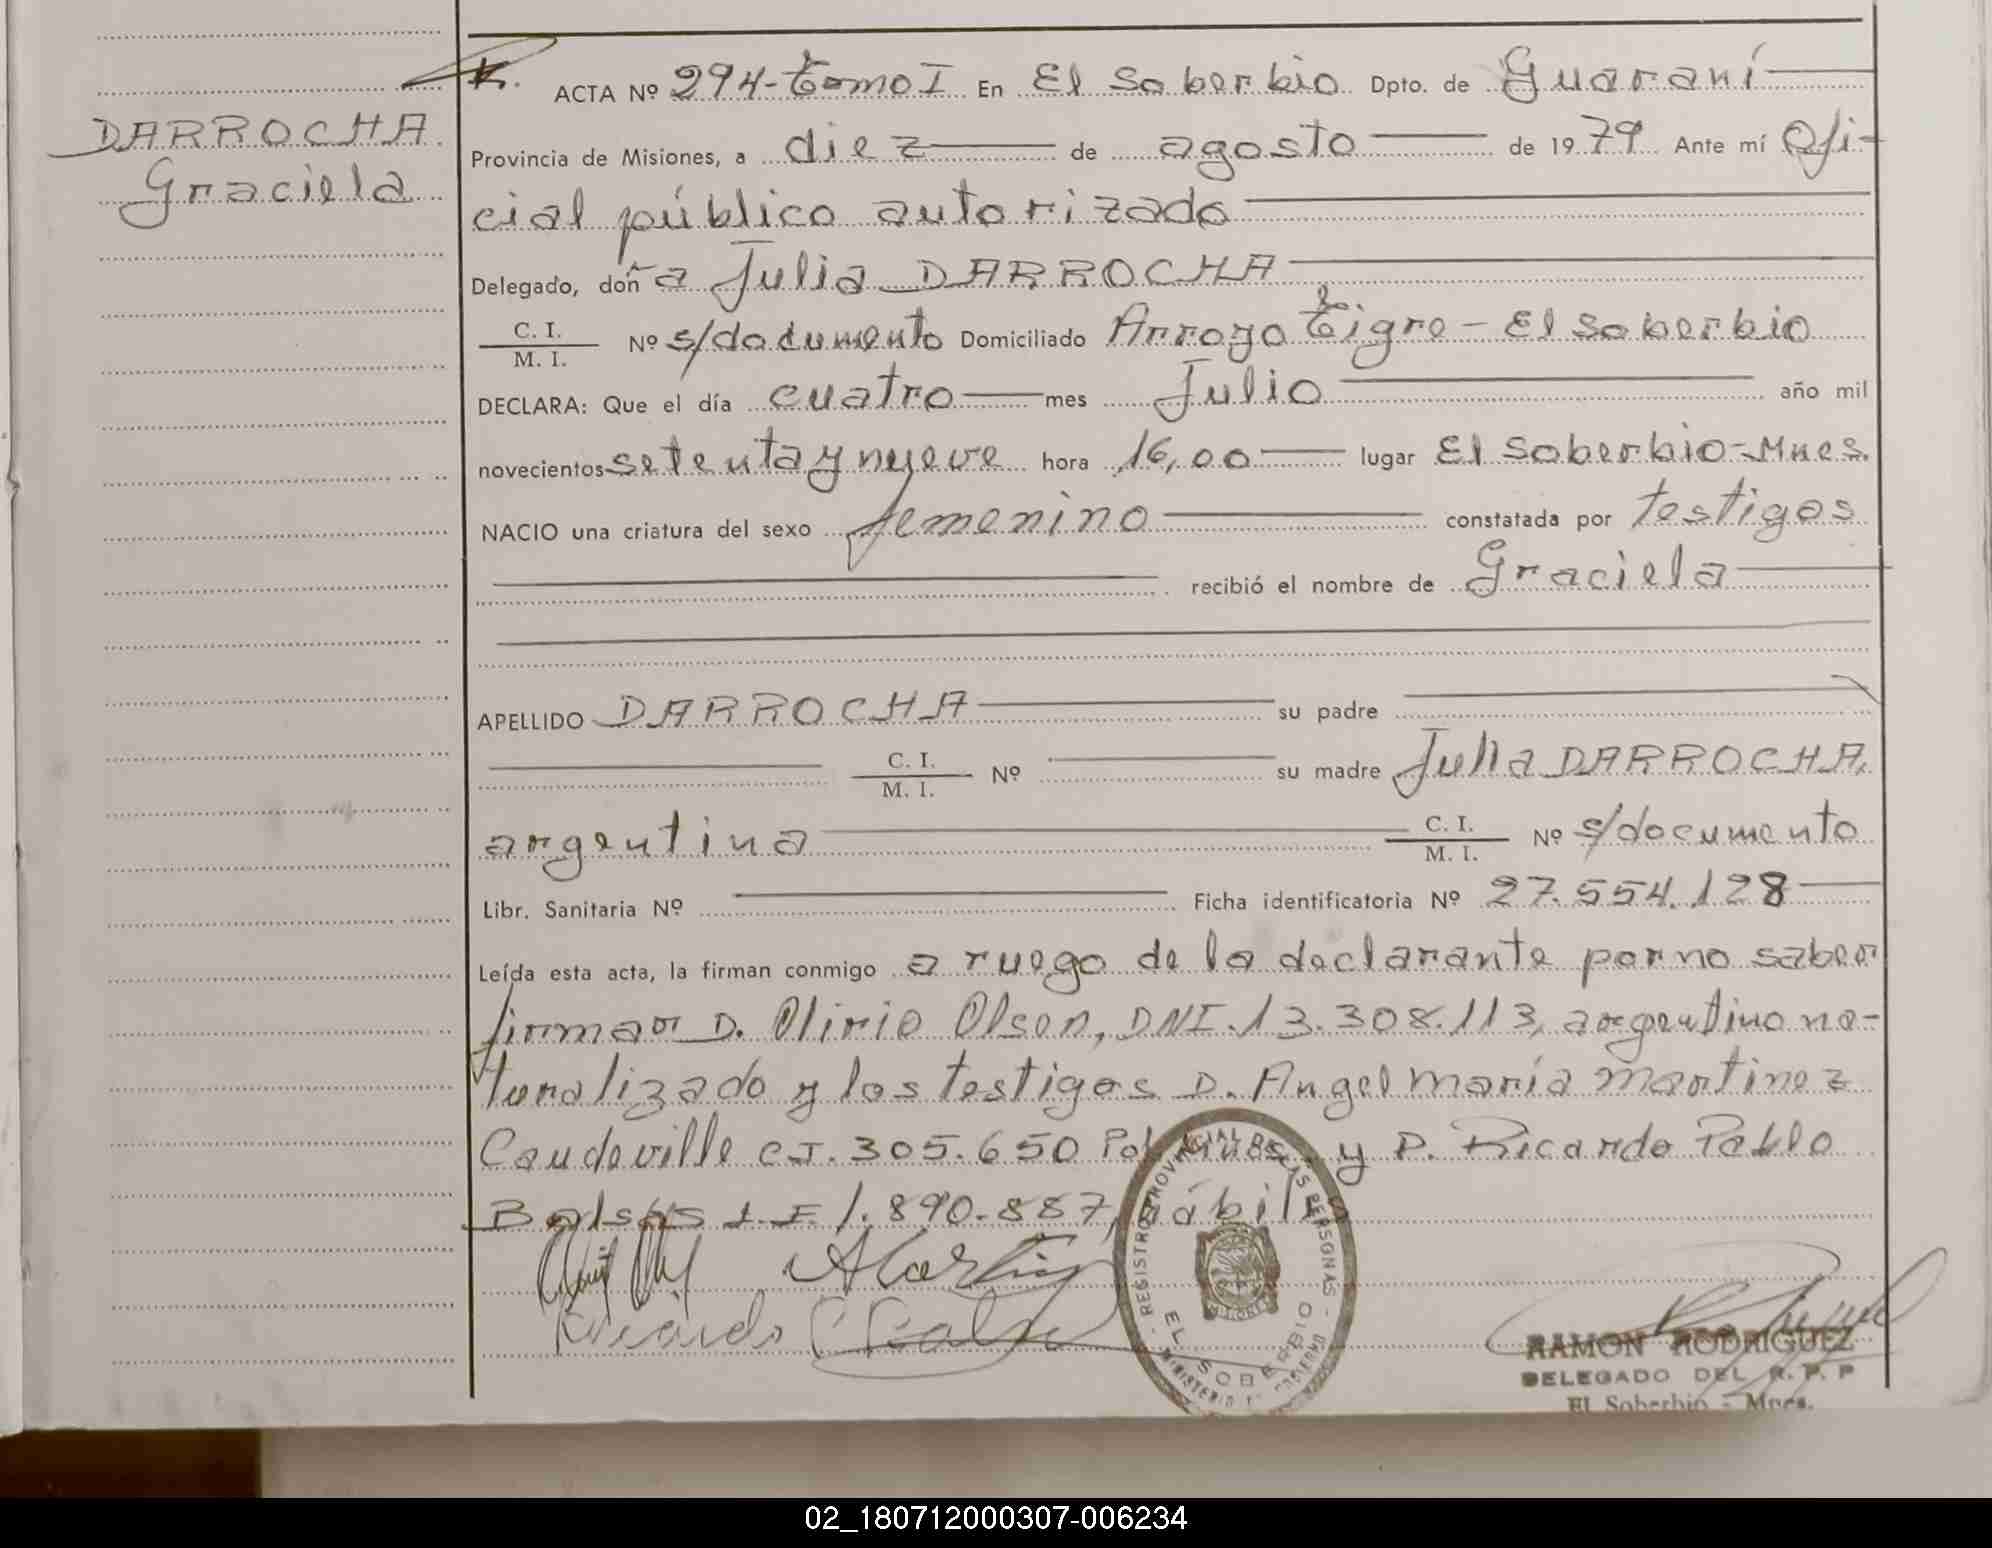 DARROCHA
Graciela
ACTA Nº 294-Tomo I En El Soberbio Dpto. de Guaraní
Provincia de Misiones, a diez de agosto de 1979 Ante mí Ofi-
cial público autorizado
Delegado, doña Julia DARROCHA
C. I.
M. I. Nº s/documento Domiciliado Arroyo Tigre - El Soberbio
DECLARA: Que el día cuatro mes Julio año mil
novecientos setenta y nueve hora 16,00 lugar El Soberbio-Mnes.
NACIO una criatura del sexo femenino constatada por testigos
recibió el nombre de Graciela
APELLIDO DARROCHA su padre
C. I.
M. I. Nº su madre Julia DARROCHA,
argentina C. I.
M. I. Nº s/documento
Libr. Sanitaria Nº Ficha identificatoria Nº 27.554.128
Leída esta acta, la firman conmigo a ruego de la declarante por no saber
firmar D. Olirio Olsen, DNI. 13.308.113, argentino na-
turalizado y los testigos D. Angel María Martinez
Caudeville C.I. 305.650 Pol. y D. Ricardo Pablo
1.890.887, hábiles
Ricardo
REGISTRO PROVINCIAL DE LAS PERSONAS
EL SOBERBIO
MINISTERIO DE GOBIERNO
RAMON RODRIGUEZ
DELEGADO DEL R. P. P
El Soberbio - Mnes.
02_180712000307-006234